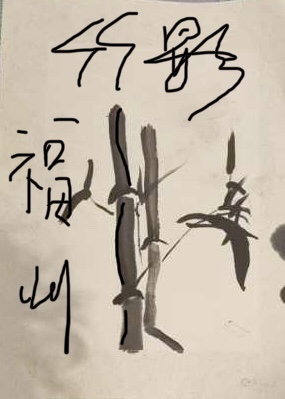 竹影
福州